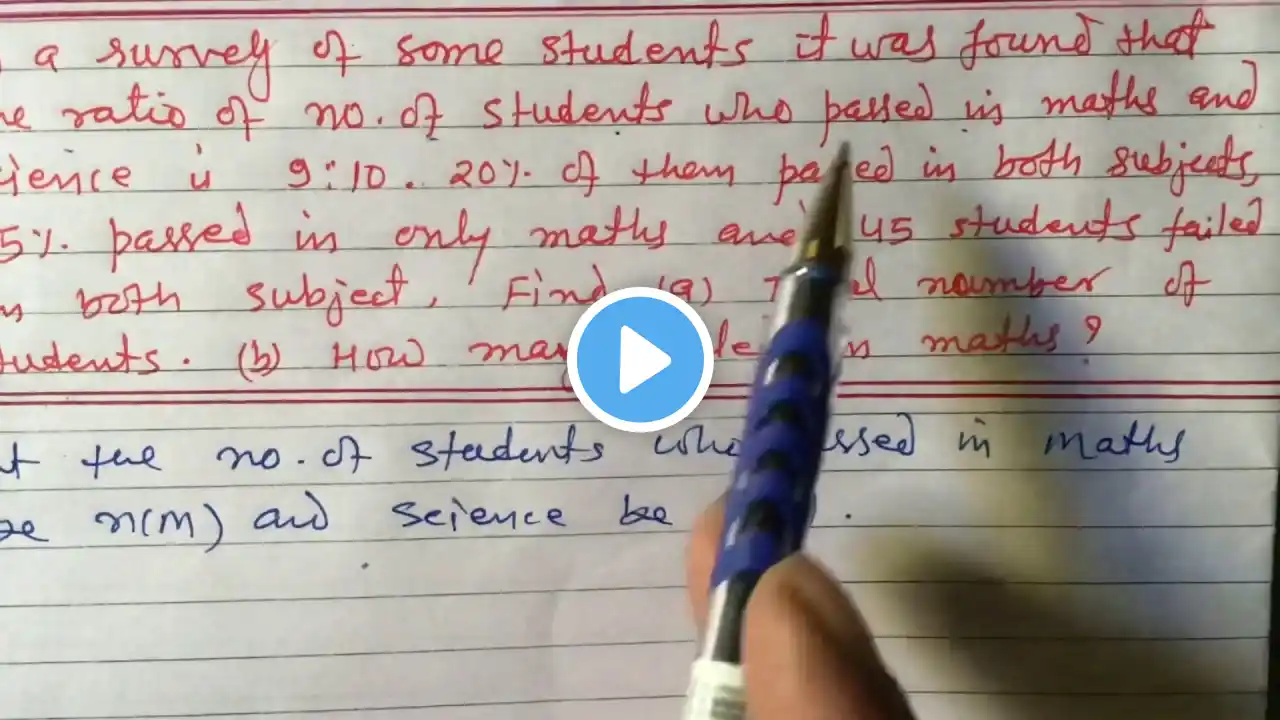 a survey of some students it was found that
he ratio of no. of students who passed in maths and
cience is 9:10. 20% of them pa ed in both subjects,
5% passed in only maths and 45 students failed
both subject, Find (a) number of
tudents. (b) How maths?
the no. of students who ssed in maths
n(m) and science be .